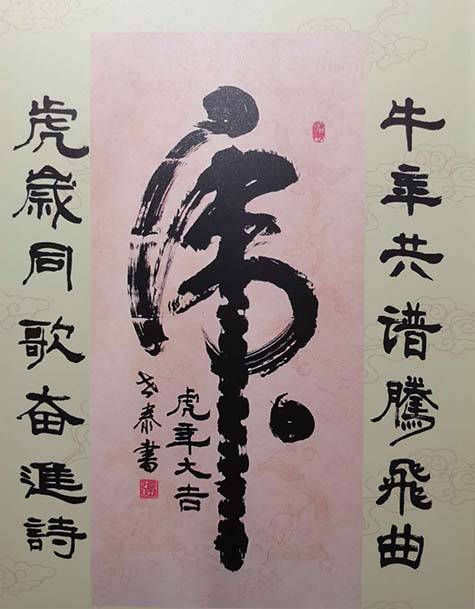 牛年共谱騰飛曲
虎
虎歲同歌奋進詩
虎年大吉
泰書